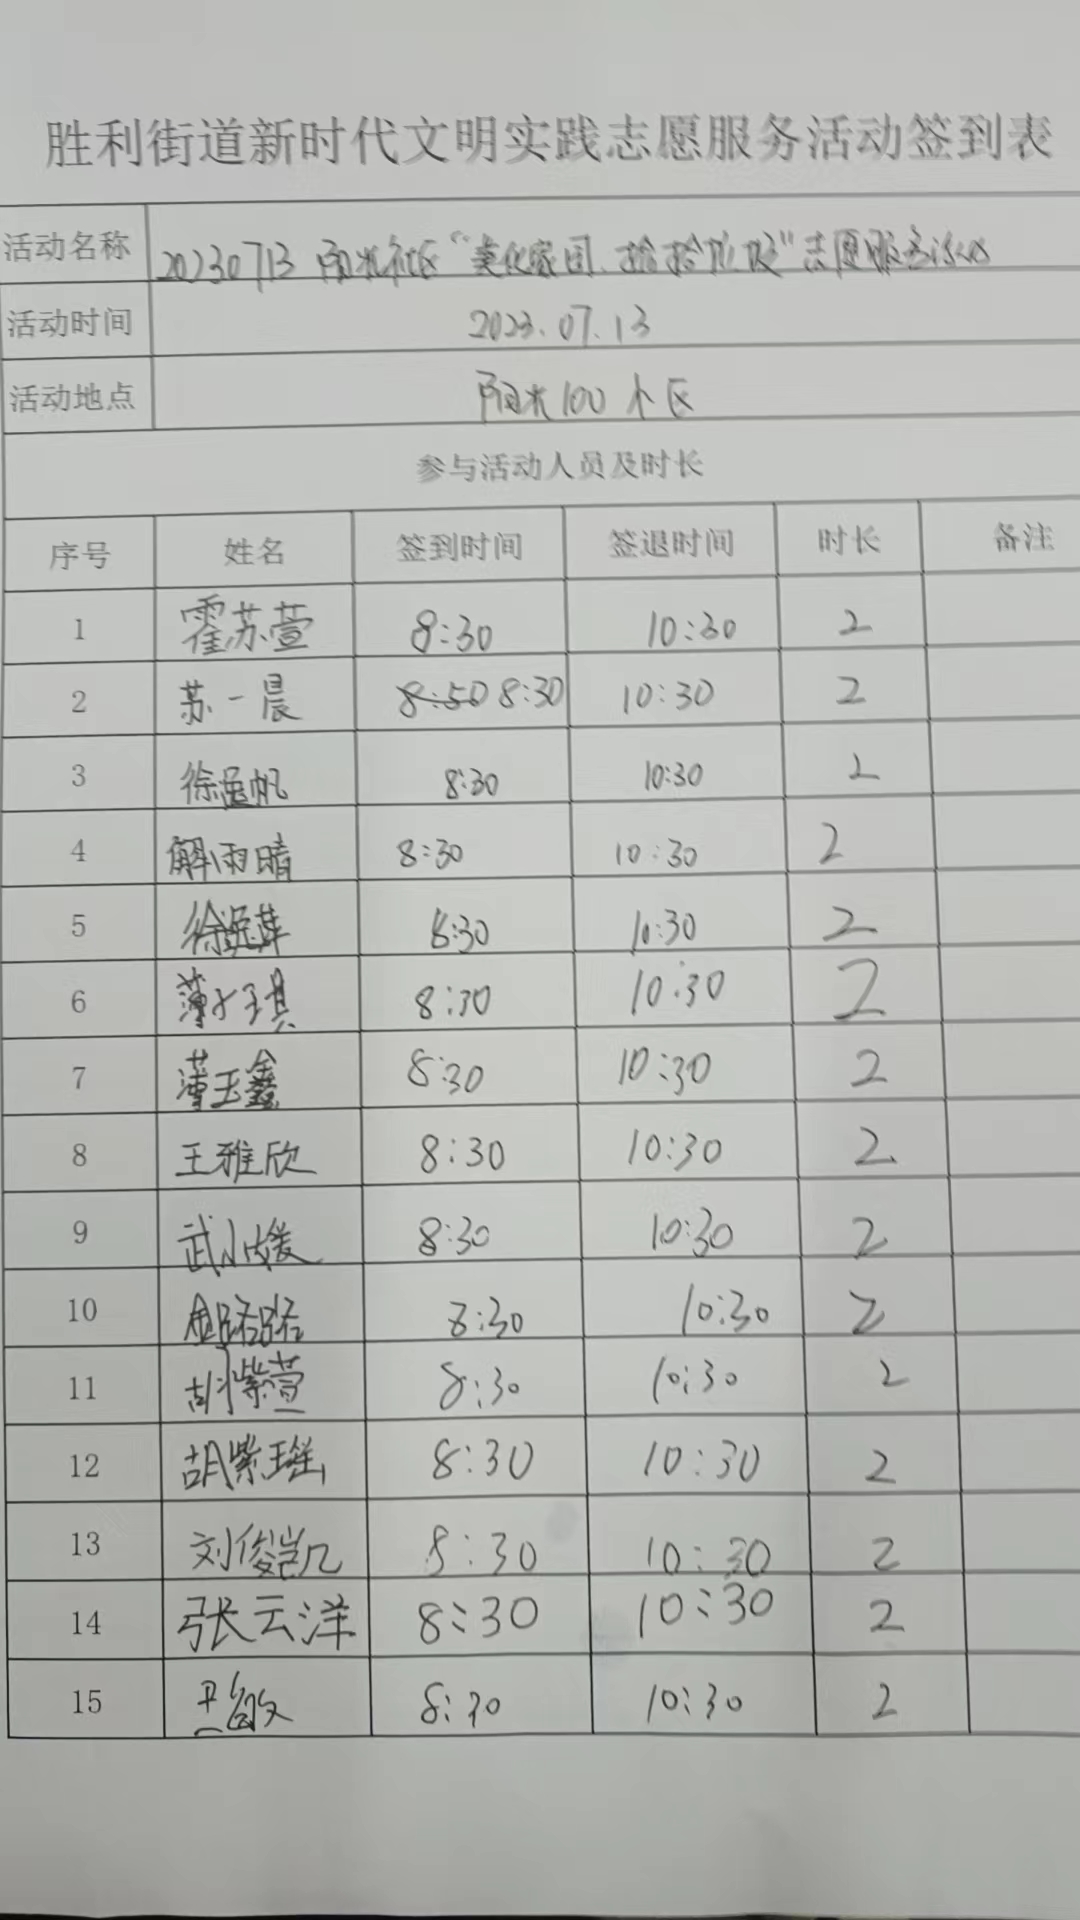 胜利街道新时代文明实践志愿服务活动签到表
活动名称 20230713 阳光社区“美化家园、捡拾垃圾”志愿服务活动
活动时间 2023.07.13
活动地点 阳光100小区
参与活动人员及时长
序号 姓名 签到时间 签退时间 时长 备注
1 霍苏萱 8:30 10:30 2
2 苏一晨 8:50 8:30 10:30 2
3 徐逸帆 8:30 10:30 2
4 解雨晴 8:30 10:30 2
5 徐逸菲 8:30 10:30 2
6 薄才琪 8:30 10:30 2
7 薄玉鑫 8:30 10:30 2
8 王雅欣 8:30 10:30 2
9 武小媛 8:30 10:30 2
10 8:30 10:30 2
11 胡紫萱 8:30 10:30 2
12 胡紫瑶 8:30 10:30 2
13 刘俊凯 8:30 10:30 2
14 张云洋 8:30 10:30 2
15 8:30 10:30 2